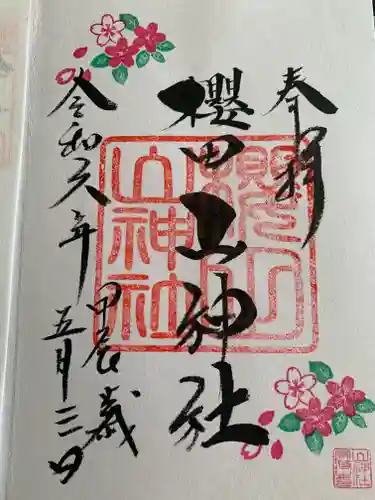 奉拝
櫻田山神社
令和六年
甲辰歳
五月三日
櫻田
山神社